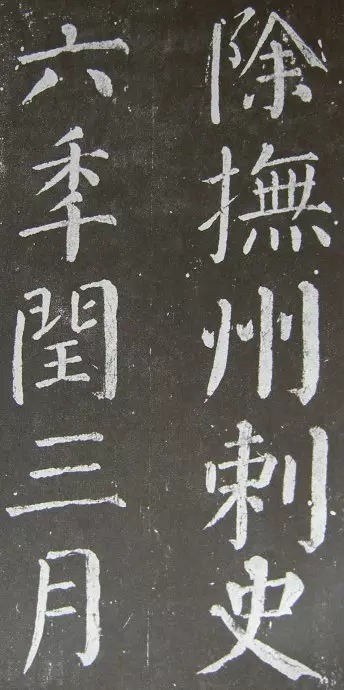 除撫州刺史
六秊閏三月